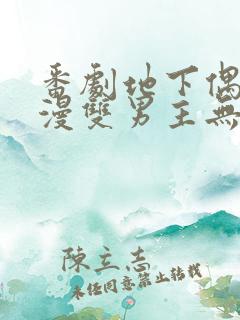 番劇地下偶
漫雙男主無
陳立志
未經同意禁止轉載